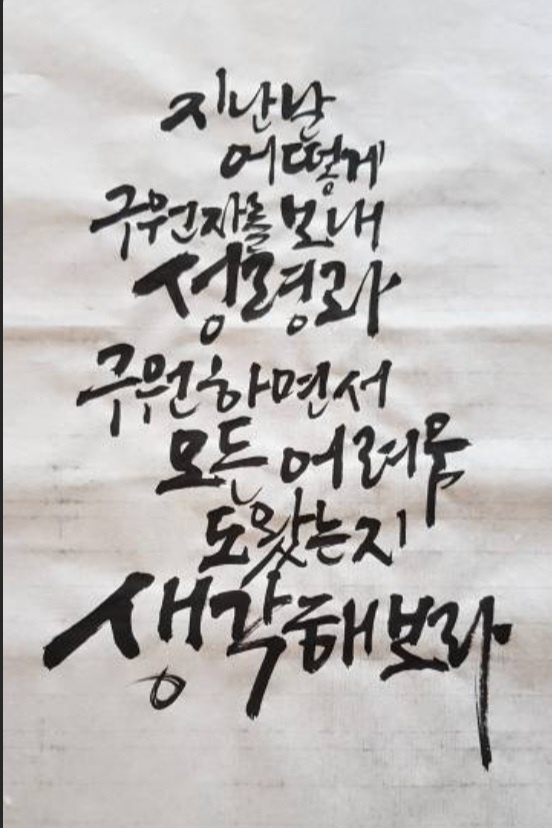 지난날
어떻게
구원자를 보내
성령과
구원하면서
모든 어려움
도왔는지
생각해보라